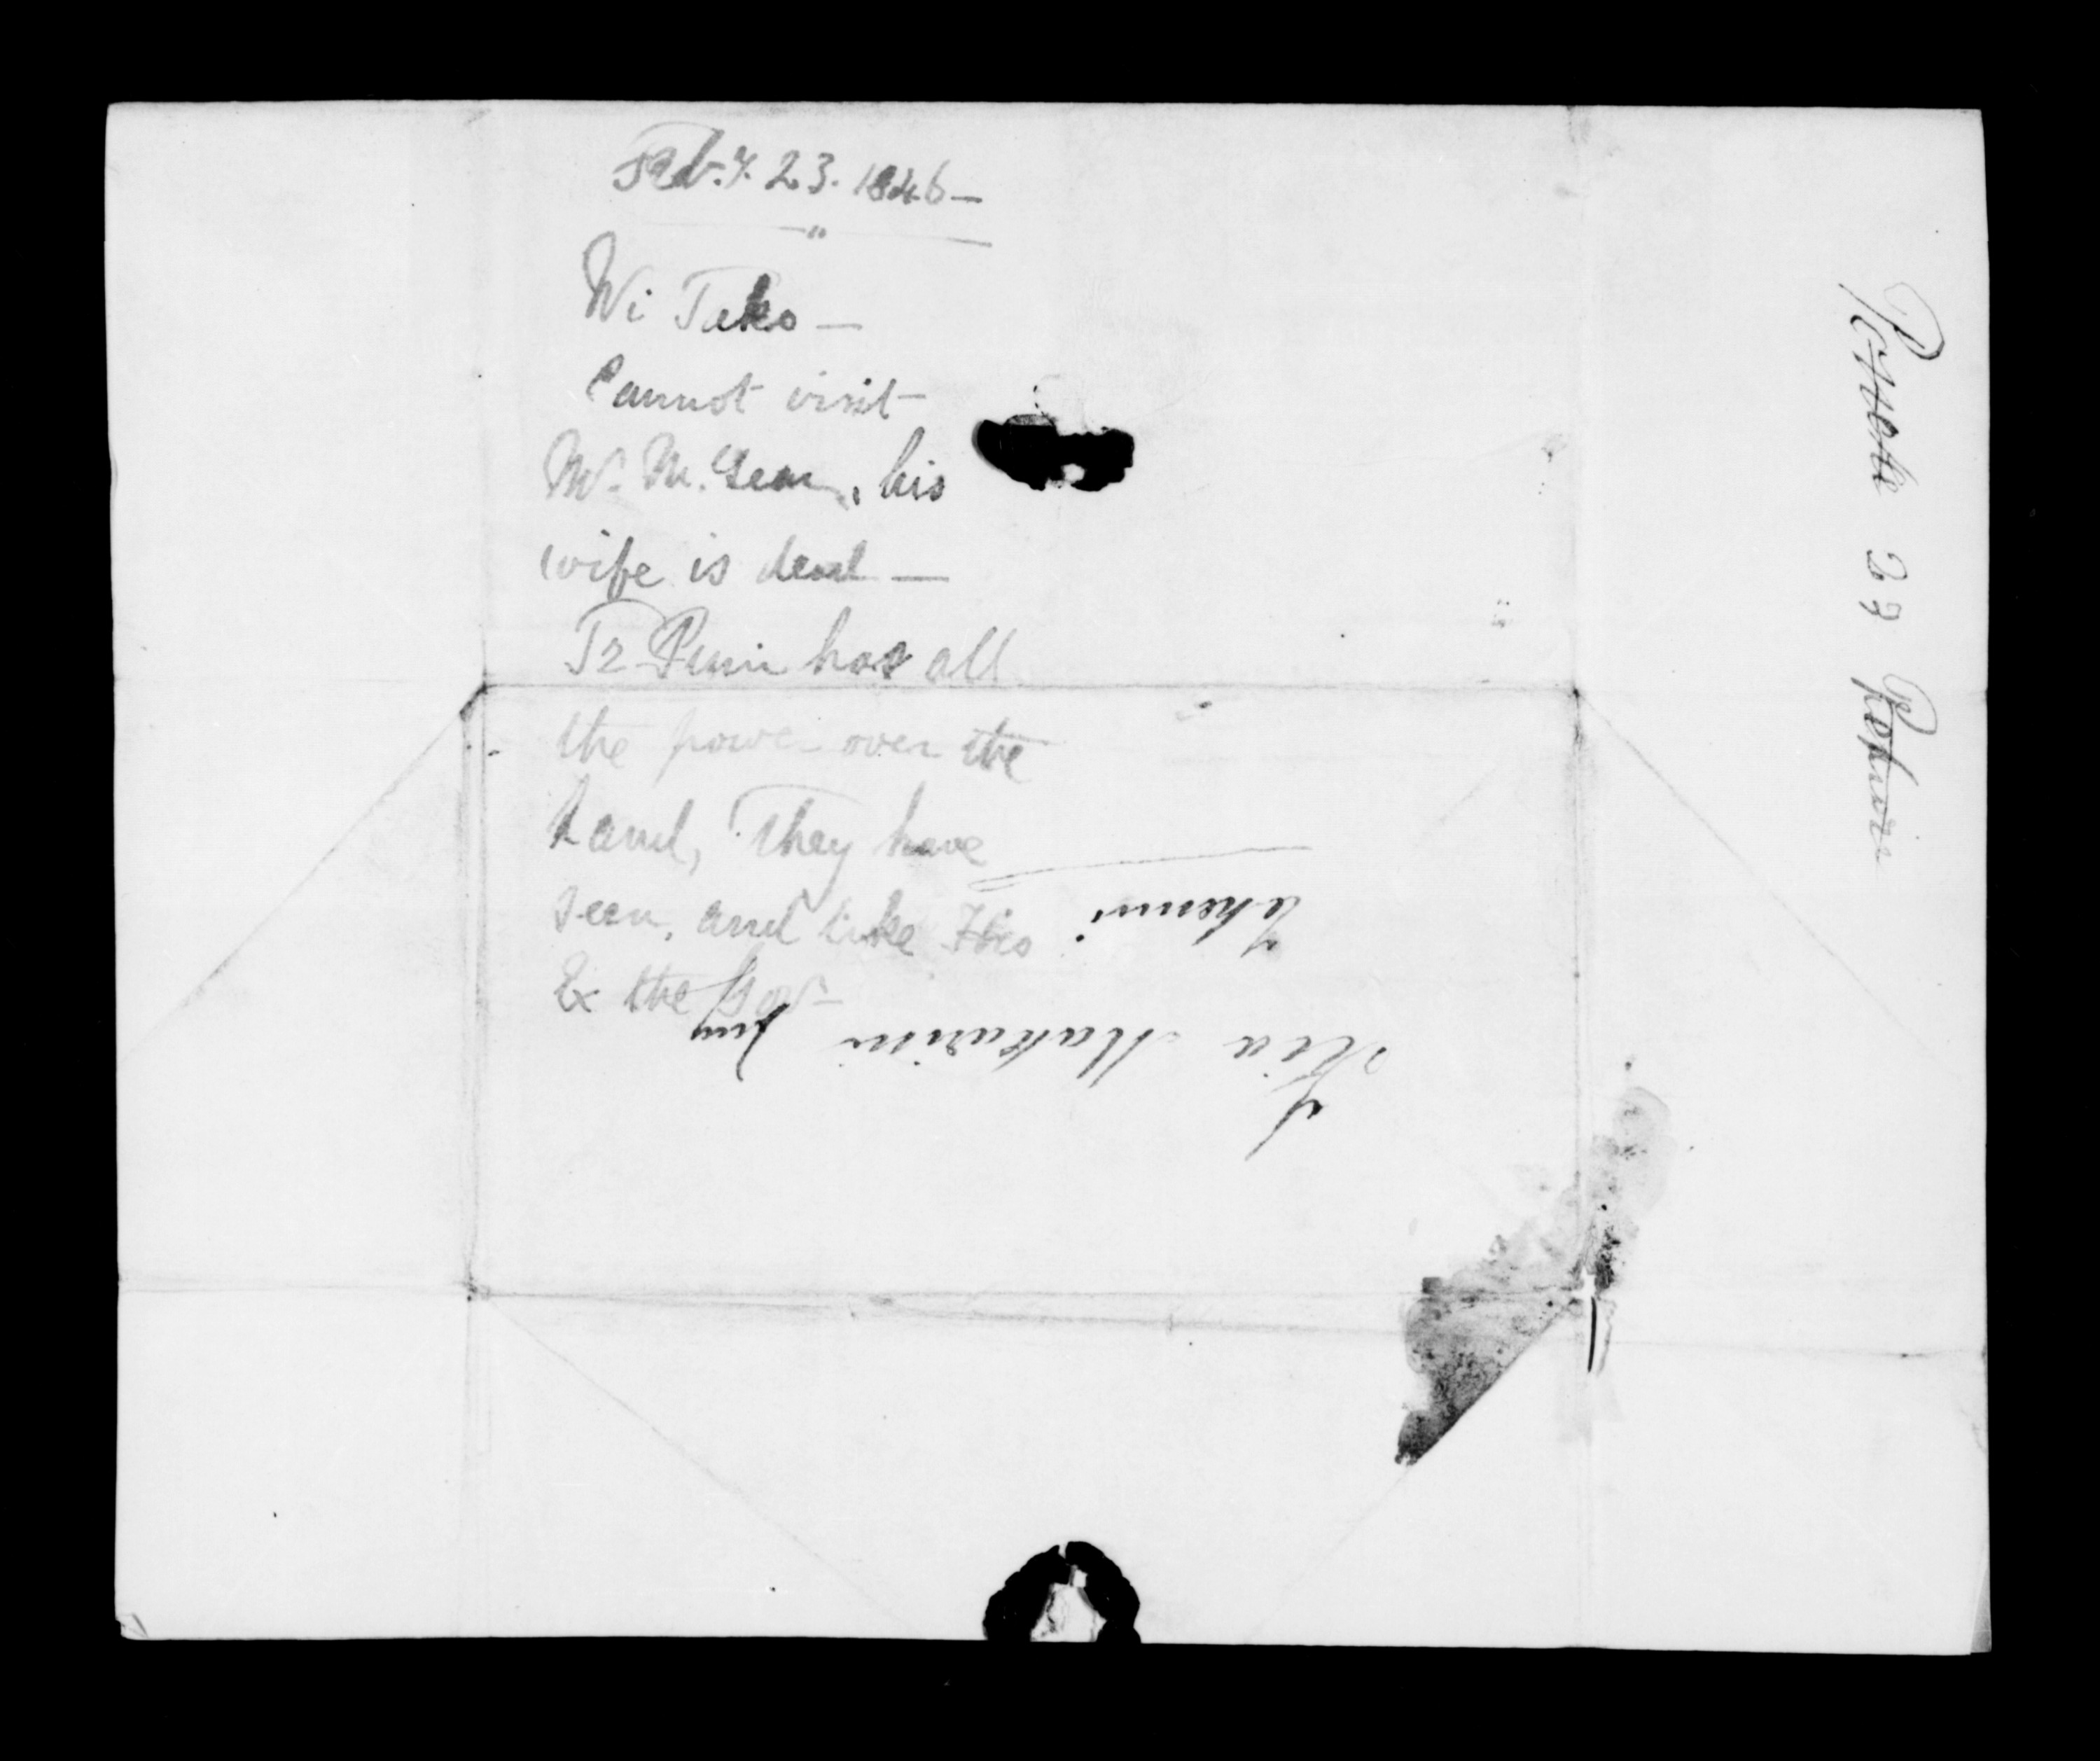 Feb.y. 23. 1846—
Wi Tako—
Cannot visit
Mr. McLean, his
wife is dead—
Te Puni has all
the power over the
Land, They have
seen, and like His
Ex the Gov
Kia Makarini
Pepuere 23